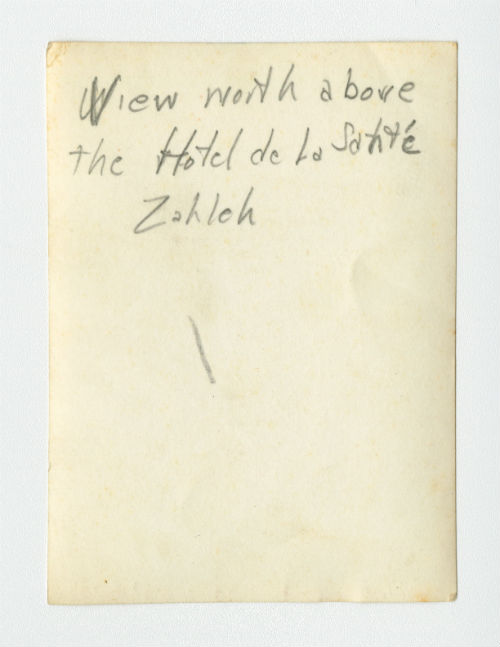 View north above
the Hotel de La Santé
Zahleh